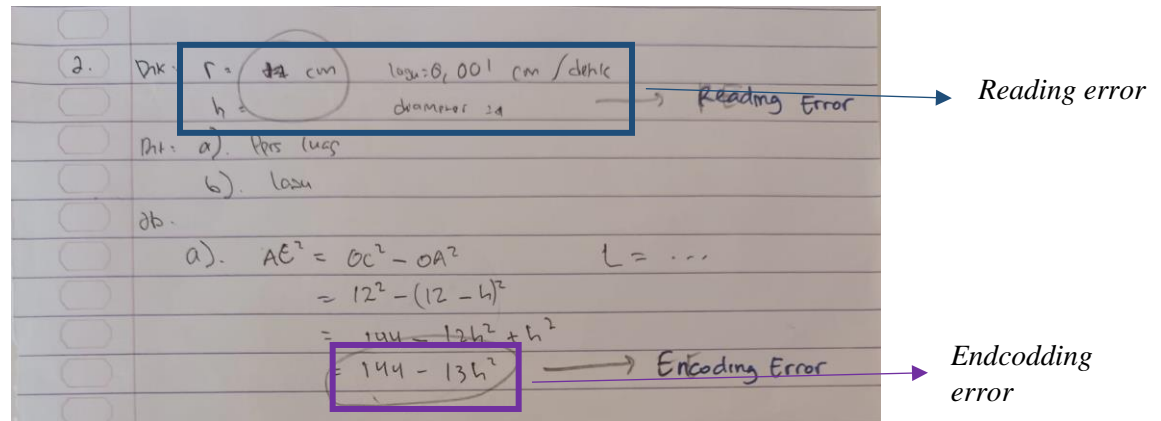 2. Dik: r = 12 cm laju: 0,001 cm / detik
h = diameter : 
→ Reading Error
Reading error
Dit: a). Pers luas
b). laju
db.
a). AC² = OC² - OA² L = ...
= 12² - (12 - h)²
= 144 - 12h² + h²
= 144 - 13h² → Encoding Error
Endcodding
error